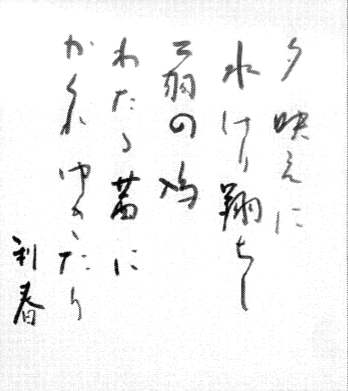 夕映えに
水けり翔ちし
二羽の鴨
わたる茜に
かくれゆきたり
利春